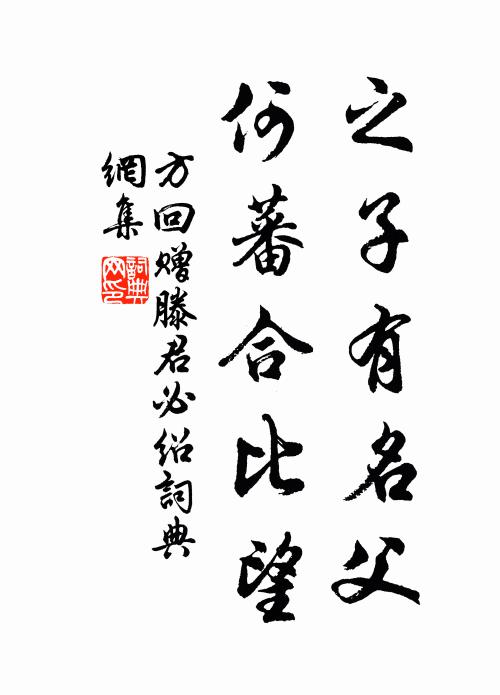 之子有名父
何蕃合比望
方回赠滕君必绍詞典
網集
詞典
网印